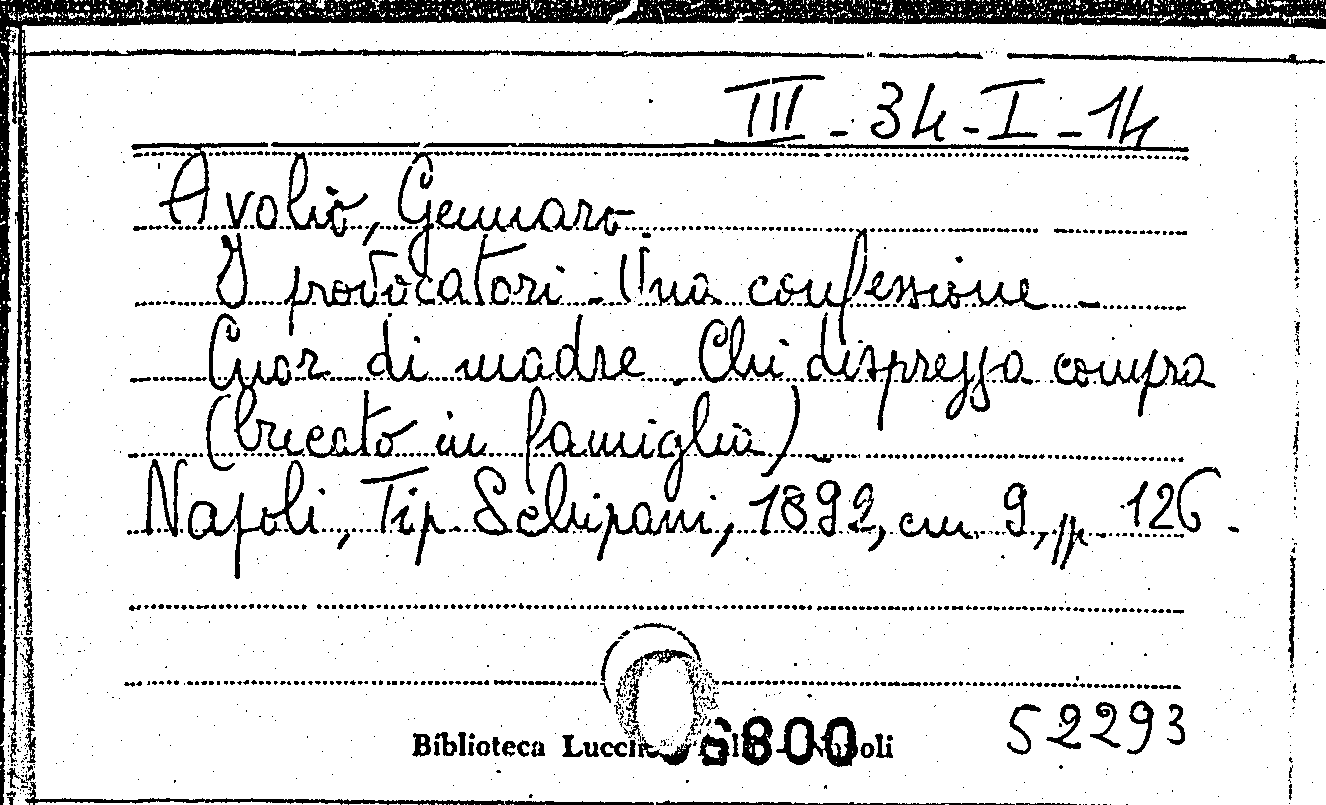 III - 34 - I - 14
Avolio, Gennaro.
I provocatori - Una confessione -
Cuor di madre. Chi disprezza compra
( in famiglia) -
Napoli, Tip. Schipani, 1892, cm 9, pp. 126.
52293
Biblioteca 6800 Napoli